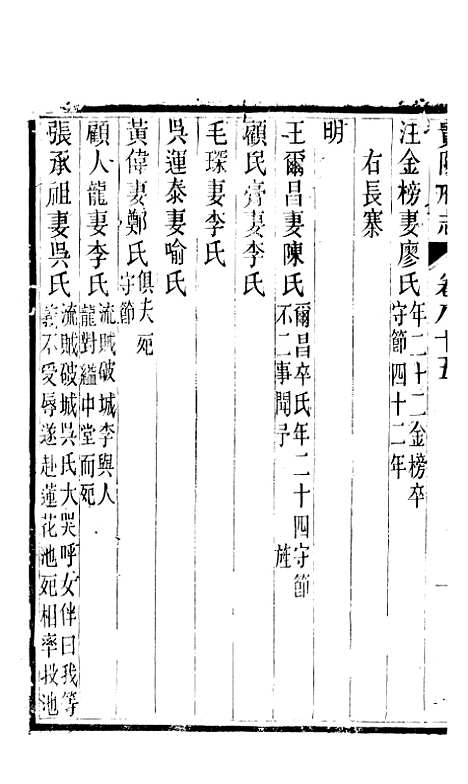 貴陽府志 卷八十五
汪金榜妻廖氏 年二十二金榜卒守節四十二年
右長寨
明
王爾昌妻陳氏 爾昌卒氏年二十四守節不二事聞予旌
顧民膏妻李氏
毛琛妻李氏
吳運泰妻喻氏
黃偉妻鄭氏 俱夫死守節
顧人龍妻李氏 流賊破城李與人龍對縊中堂而死
張承祖妻吳氏 流賊破城吳氏大哭呼女伴曰我等義不受辱遂赴蓮花池死相率投池